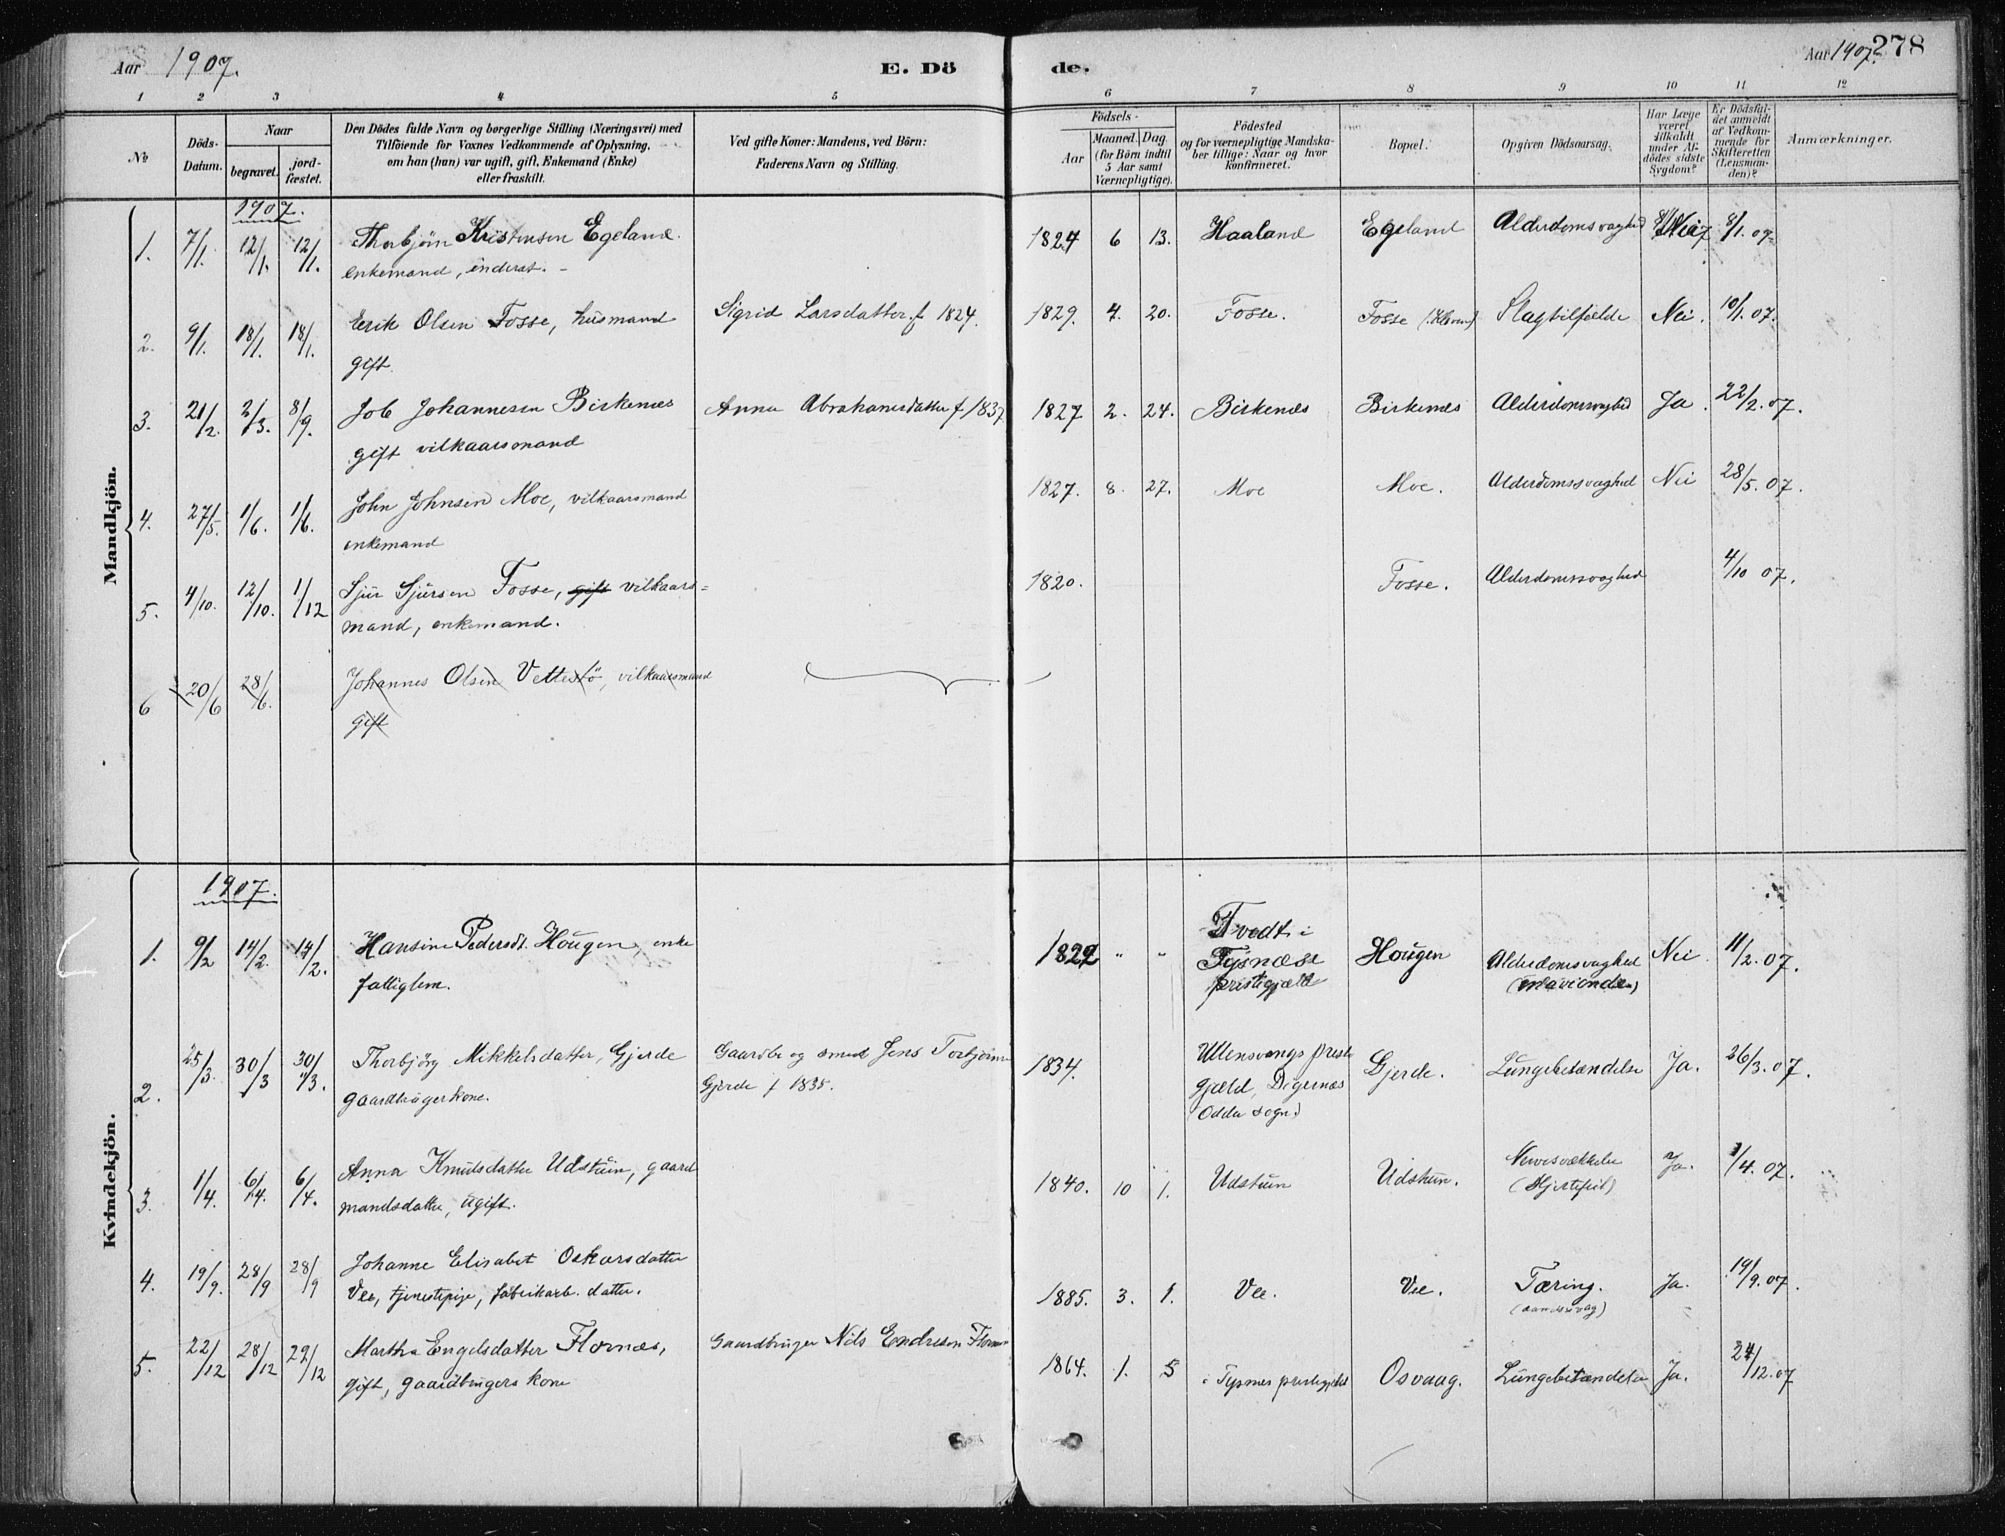 Aar 1907.
E. Dö
de.
Aar 1907.
278
1 2 3 4 5 6 7 8 9 10 11 12
No
Döds-
Datum.
Naar
begravet.
jord-
fæstet.
Den Dödes fulde Navn og borgerlige Stilling (Næringsvei) med
Tilföiende for Voxnes Vedkommende af Oplysning,
om han (hun) var ugift, gift, Enkemand (Enke)
eller fraskilt.
Ved gifte Koner: Mandens, ved Börn:
Faderens Navn og Stilling.
Födsels-
Aar
Maaned. Dag.
(for Börn indtil
5 Aar samt
Værnepligtige).
Födested
og for værnepligtige Mandska-
ber tillige: Naar og hvor
konfirmeret.
Bopæl.
Opgiven Dödsaarsag.
Har Læge
været
tilkaldt
under Af-
dödes sidste
Sygdom?
Er Dödsfal-
det anmeldt
af Vedkom-
mende for
Skifteretten
(Lensman-
den)?
Anmærkninger.
Mandkjön.
1907.
1. 7/1. 12/1. 12/1. Thorbjörn Kristensen Egeland. 1827 6 13. Haaland Egeland Alderdomssvaghed Nei 8/1. 07.
enkemand, inderst. -
2. 9/1. 18/1. 18/1. Erik Olsen Fosse, husmand Sigrid Larsdatter f 1824. 1829. 4. 20. Fosse. Fosse Slagtilfælde Nei. 10/1. 07.
gift.
3. 21/2. 2/3. 8/9. Job Johannesen Birkenes Anna Abrahamsdatter f 1837 1827 2. 24. Birkenes Birkenes Alderdomssvaghed Ja. 22/2. 07.
gift vilkaarsmand
4. 27/5. 1/6. 1/6. John Johnsen Moe, vilkaarsmand 1827. 8. 27. Moe Moe. Alderdomssvaghed Nei 28/5. 07.
enkemand
5. 4/10. 12/10. 1/12 Sjur Sjursen Fosse, gift vilkaars= 1820. Fosse. Alderdomssvaghed 4/10 07.
mand, enkemand.
6 20/6 28/6. Johannes Olsen Vettestö, vilkaarsmand
gift
Kvindekjön.
1907.
1. 9/2 14/2. 14/2. Hansine Pedersdt. Hougen, enke 1822 " " Tvedt i Hougen Alderdomsvaghed Nei 11/2. 07.
fattiglem. Tysnæse
prestigjæld
2. 25/3. 30/3 30/3. Thorbjörg Mikkelsdatter, Gjerde Gaardbr og smed Jens Torbjörns 1834. Ullensvangs prest Gjerde. Lungebetændelse Ja. 26/3. 07.
gaardbrugerkone. Gjerde f 1835. gjeld, Digernes
Odda sogn.)
3. 1/4. 6/4. 6/4. Anna Knutsdatter Udstuin, gaard 1840. 10 1. Udstuin Udstuin. Nervesvækkelse Ja. 1/4. 07.
mandsdatter, ugift. (Hjertefeil)
4. 19/9. 28/9 28/9 Johanne Elisabet Oskarsdatter 1885. 3. 1. Vee. Vee. Tæring. Ja. 19/9. 07.
Vee, tjenestepige, fabrikarb. datter.
5. 22/12 28/12 29/12 Martha Engelsdatter Flornes, Gaardbruger Nils Endreson Flornes 1864. 1. 5 i Tysnes prestegjeld Osvaag. Lungebetændelse Ja. 24/12. 07
gift, gaardbrugers kone